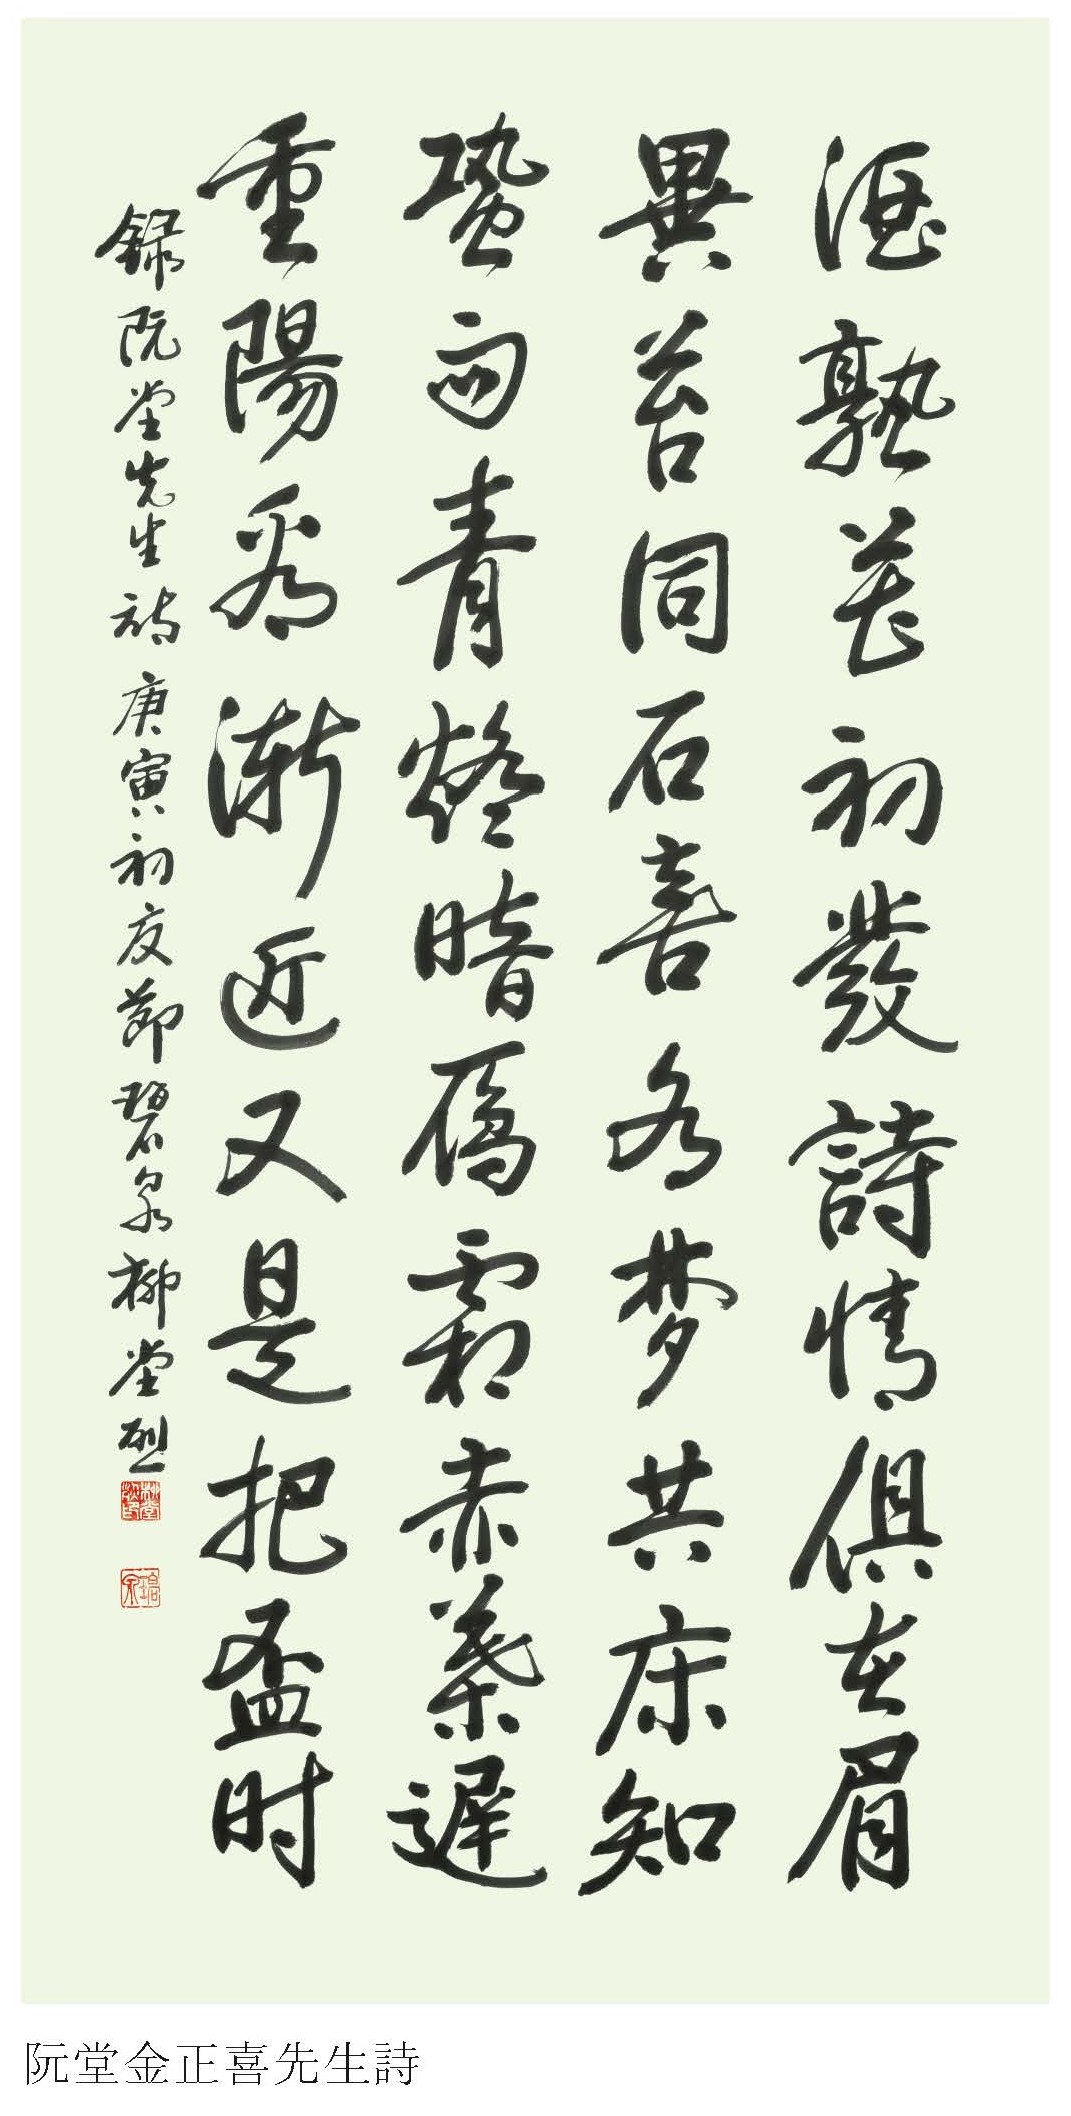 酒熟花初發詩情俱在眉
異苔同石喜各梦共床知
蛩雨青燈暗鴈霜赤葉遲
重陽看漸近又是把盃时
錄阮堂先生詩庚寅初夏節碧泉柳堂烈
阮堂金正喜先生詩